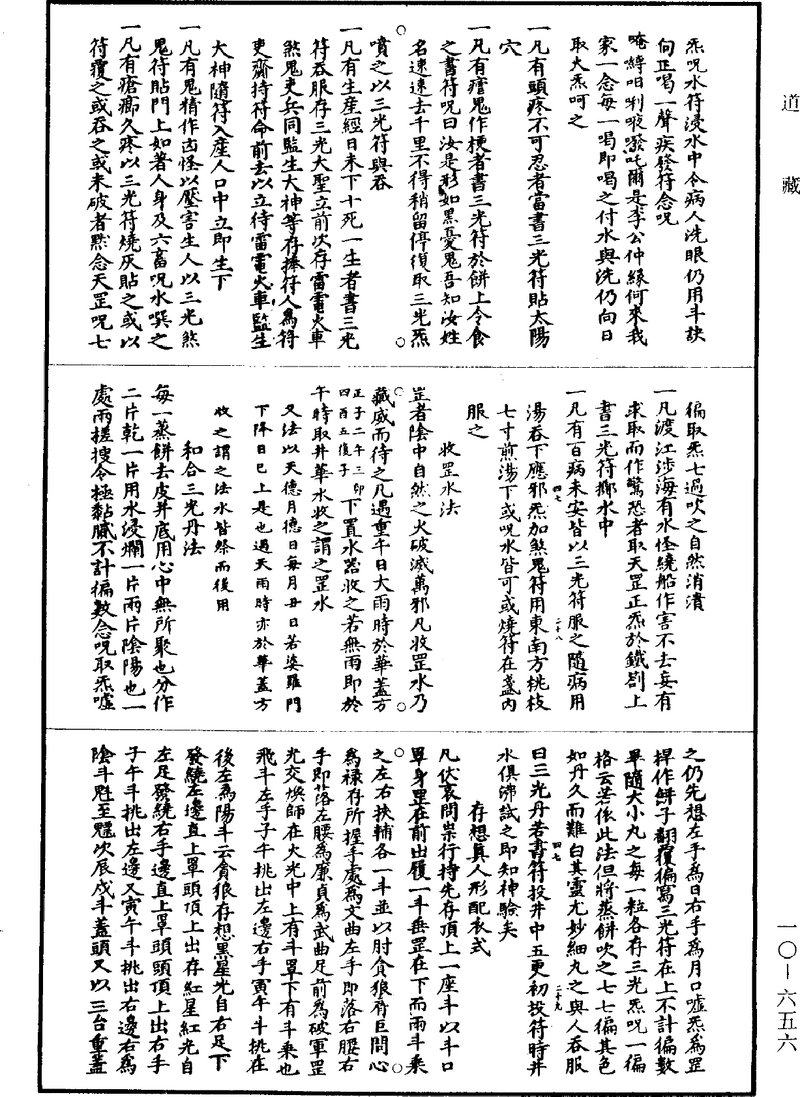 道藏
炁呪水符浸水中令病人洗眼仍用斗訣
向正喝一聲疾發符念呪
唵縛呬咧吰發吒爾是李公仲緣何來我
家一念每一喝即喝之付水與洗仍向日
取大炁呵之
一凡有頭疼不可忍者當書三光符貼太陽
穴
一凡有瘧鬼作梗者書三光符於餅上令食
之書符呪曰汝是形如黑憂鬼吾知汝姓
名速遠去千里不得稍留停復取三光炁
噴之以三光符與吞
一凡有生產經日未下十死一生者書三光
符吞服存三光大聖立前次存雷電火車
煞鬼吏兵同監生大神等存捧符人為符
吏齋持符命前去以立待雷電火車監生
大神隨符入產人口中立即生下
一凡有鬼精作凶怪以壓害生人以三光煞
鬼符貼門上如著人身及六畜呪水噀之
一凡有瘡癤久疼以三光符燒灰貼之或以
符覆之或吞之或未破者黙念天罡呪七
徧取炁七過吹之自然消潰
一凡渡江涉海有水怪繞船作害不去妄有
求取而作驚恐者取天罡正炁於鐵劄上
書三光符擲水中
一凡有百病未安皆以三光符服之隨病用
湯吞下應邪炁加煞鬼符用東南方桃枝
七寸煎湯下或呪水皆可或燒符在盞內
服之
收罡水法
罡者陰中自然之火破滅萬邪凡收罡水乃
藏威而待之凡遇重午日大雨時於華蓋方
正子二午三卯四酉五復子下置水器收之若無雨即於
午時取井華水收之謂之罡水
又法以天德月德日每月丑日若婆羅門
下降日已上是也遇天雨時亦於華蓋方
收之謂之法水皆祭而後用
和合三光丹法
每一蒸餅去皮并底用心中無所聚也分作
二片乾一片用水浸爛一片兩片陰陽也一
處兩搓搜令極黏膩不計徧數念呪取炁噓
之仍先想左手為日右手為月口噓炁為罡
捍作餅子翻覆徧寫三光符在上不計徧數
畢隨大小丸之每一粒各存三光炁呪一徧
格云若依此法但將蒸餅吹之七七徧其色
如丹久而難白其靈尤妙細丸之與人吞服
曰三光丹若書符投井中五更初投符時井
水俱沸試之即知神驗矣
存想真人形配衣式
凡伏哀問祟行持先存頂上一座斗以斗口
單身罡在前出履一斗垂罡在下而兩斗乘
之左右挾輔各一斗並以肘貪狼脣巨門心
為祿存所握手處為文曲左手即落右腰右
手即落左腰為廉貞為武曲足前為破軍罡
光交煥師在火光中上有斗罩下有斗乘也
飛斗左手子午挑出左邊右手寅午斗挑在
後左為陽斗云貪狼存想黑星光自右足下
發繞左邊直上罩頭頂上出存紅星紅光自
左足發繞右手邊直上罩頭頭頂上出右手
子午斗挑出左邊又寅午斗挑出右邊右為
陰斗魁至魒次辰戌斗蓋頭又以三台重蓋
一〇—六五六